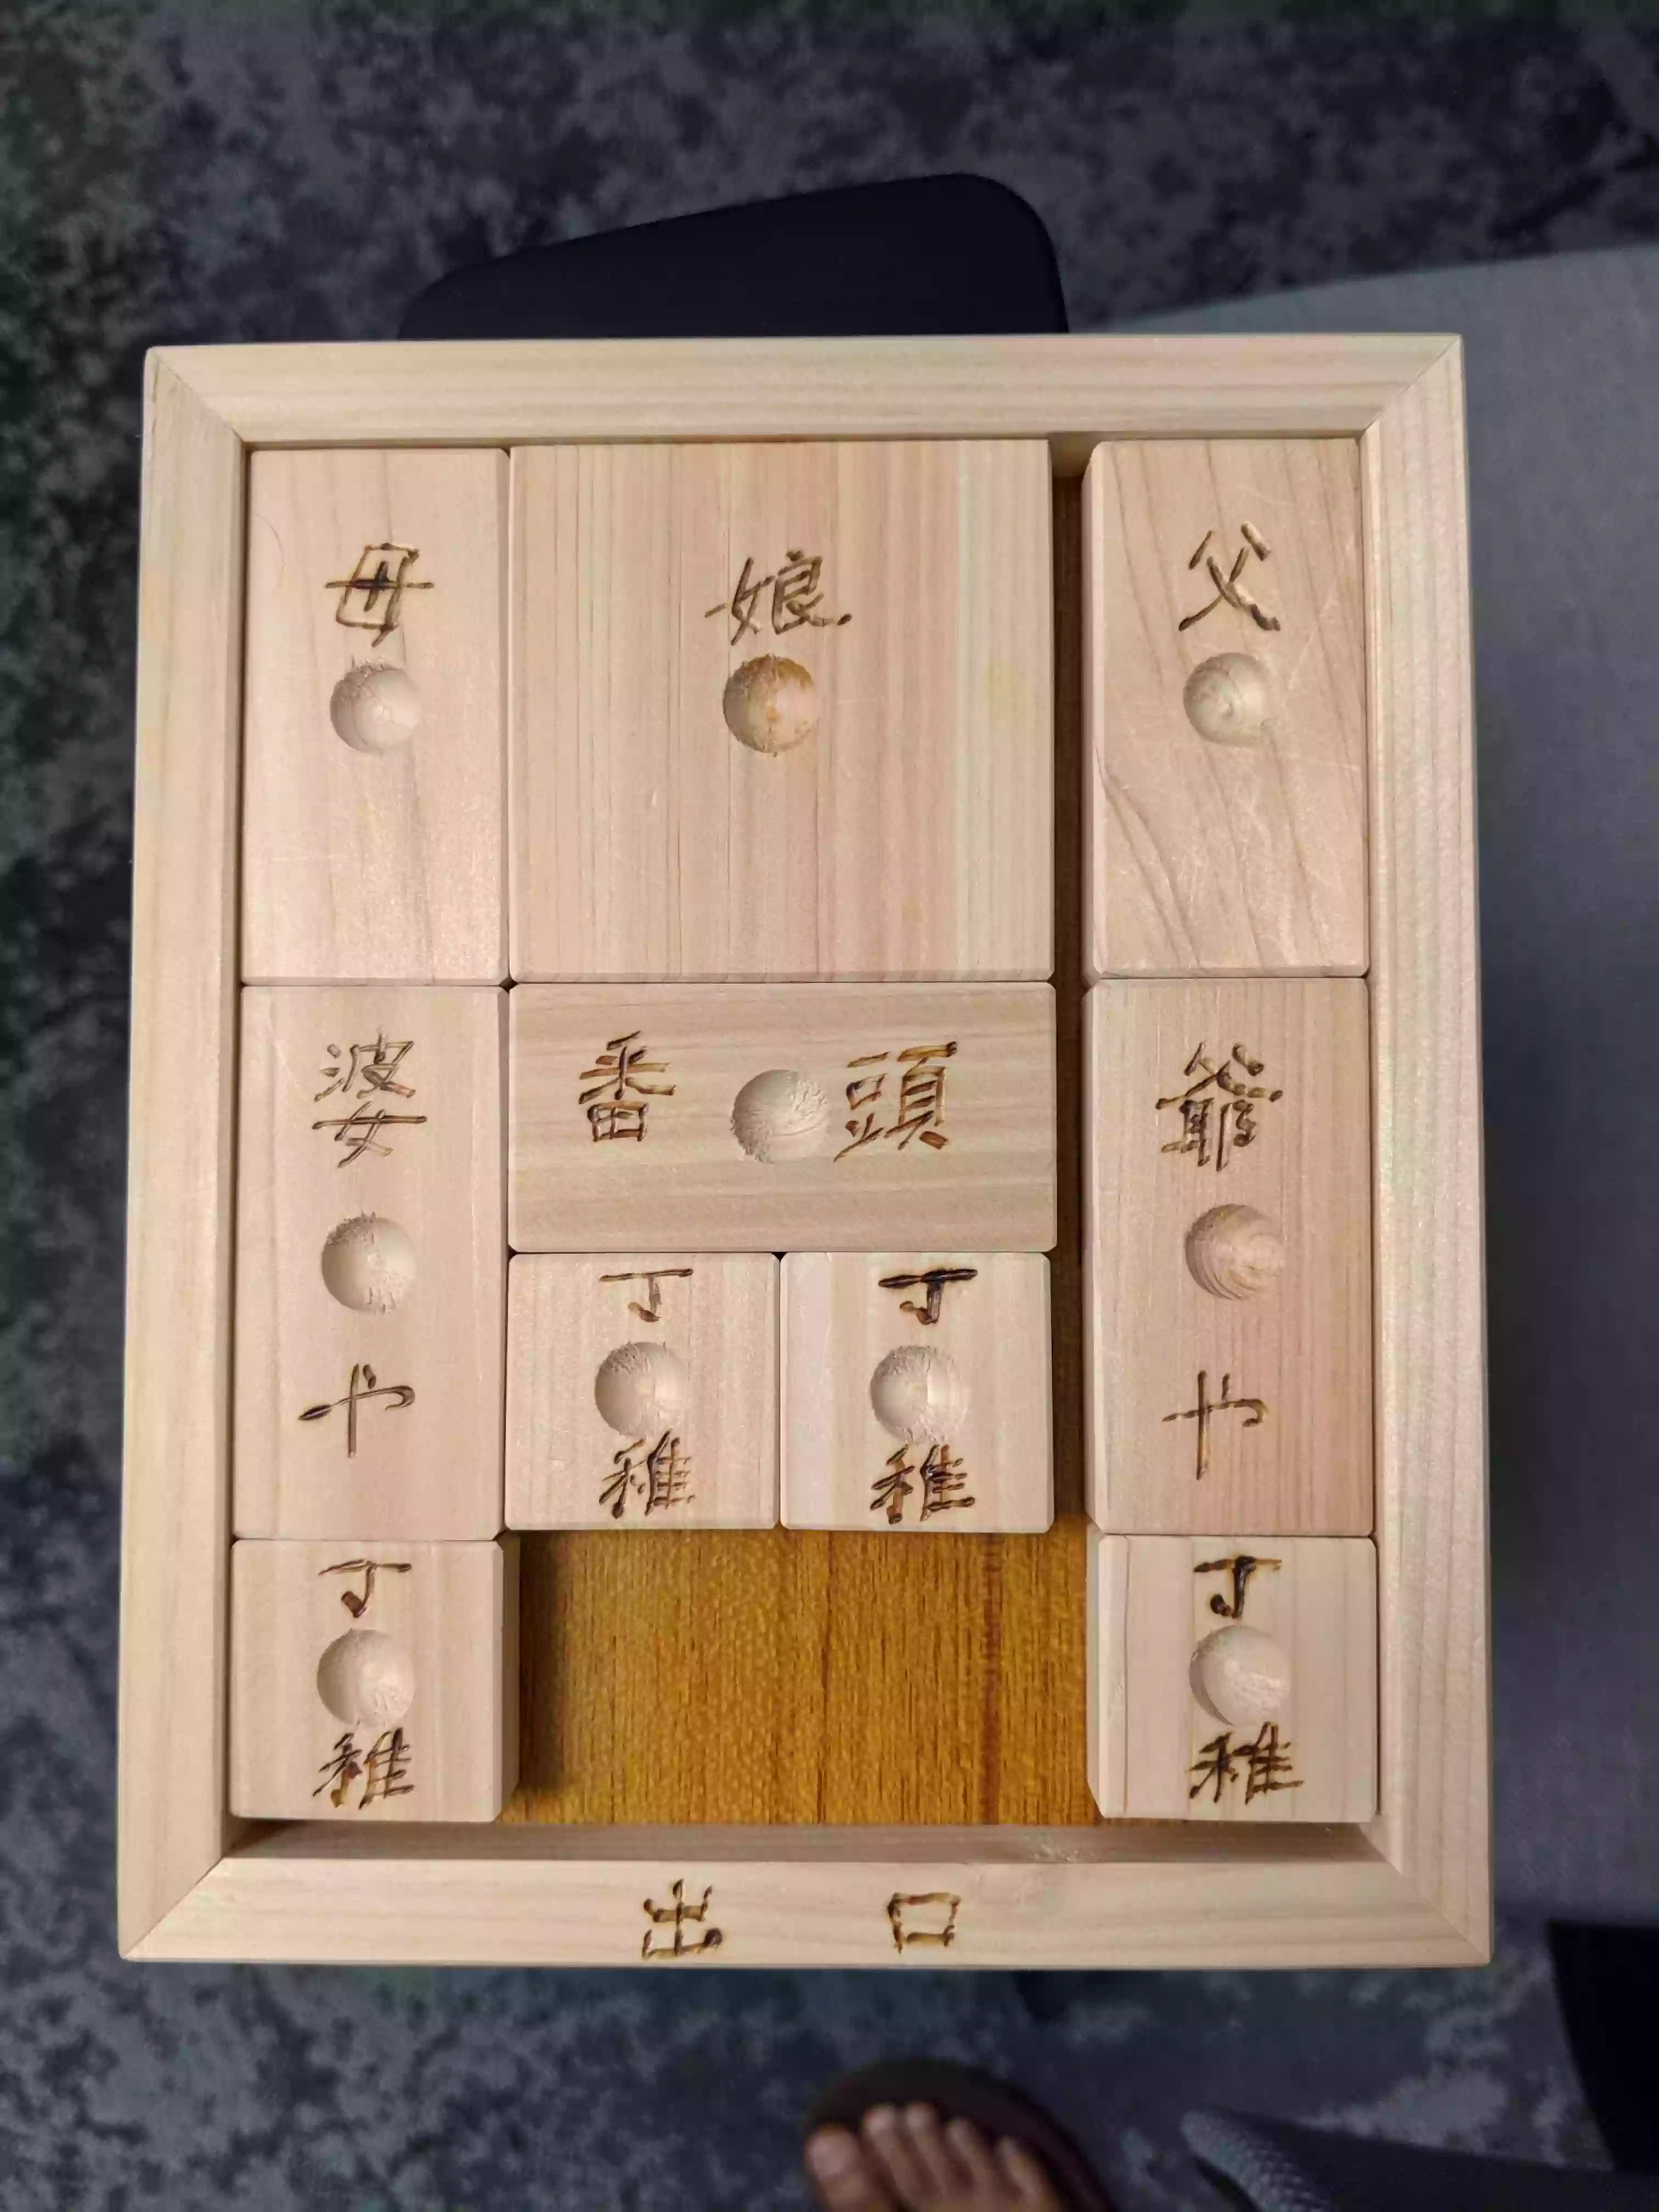 母
娘
父
婆や
番頭
爺や
丁稚
丁稚
丁稚
丁稚
出口